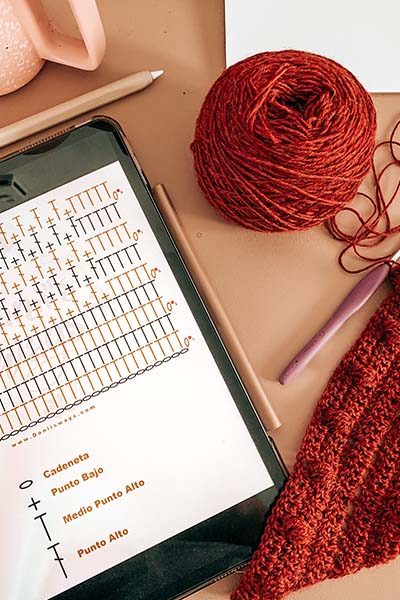 www.Danitsways.com
Cadeneta
Punto Bajo
Medio Punto Alto
Punto Alto